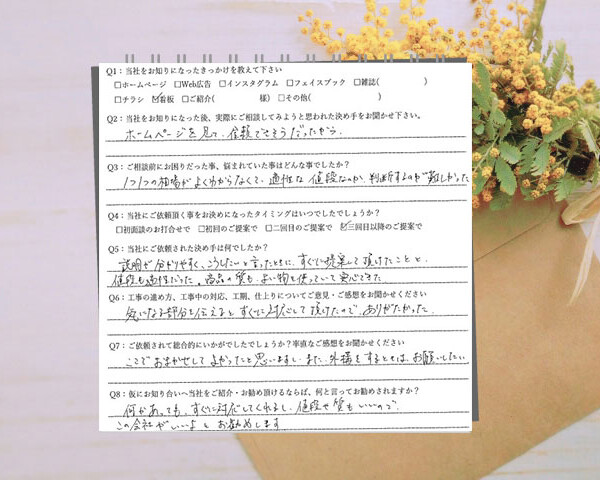 Q1：当社をお知りになったきっかけを教えて下さい
□ホームページ □Web広告 □インスタグラム □フェイスブック □雑誌( )
□チラシ ☑看板 □ご紹介( 様) □その他( )
Q2：当社をお知りになった後、実際にご相談してみようと思われた決め手をお聞かせ下さい。
ホームページを見て、信頼できそうだったから、
Q3：ご相談前にお困りだった事、悩まれていた事はどんな事でしたか？
1つ1つの相場がよくわからなくて、適性な値段なのか、判断するのが難しかった
Q4：当社にご依頼頂く事をお決めになったタイミングはいつでしたでしょうか？
□初面談のお打合せで □初回のご提案で □二回目のご提案で ☑三回目以降のご提案で
Q5：当社にご依頼された決め手は何でしたか？
説明が分かりやすく、こうしたいと言ったときに、すぐに提案して頂けたことと、
値段も適性だった。商品の質も、よい物を使っていて安心できた
Q6：工事の進め方、工事中の対応、工期、仕上りについてご意見・ご感想をお聞かせください
気になる部分を伝えると、すぐに対応して頂けたので、ありがたかった。
Q7：ご依頼されて総合的にいかがでしたでしょうか？率直なご感想をお聞かせください
ここでおまかせしてよかったと思いますし、また、外構をするときは、お願いしたい
Q8：仮にお知り合いへ当社をご紹介・お勧め頂けるならば、何と言ってお勧めされますか？
何かあっても、すぐに対応してくれるし、値段や質もいいので、
この会社がいいよとお勧めします